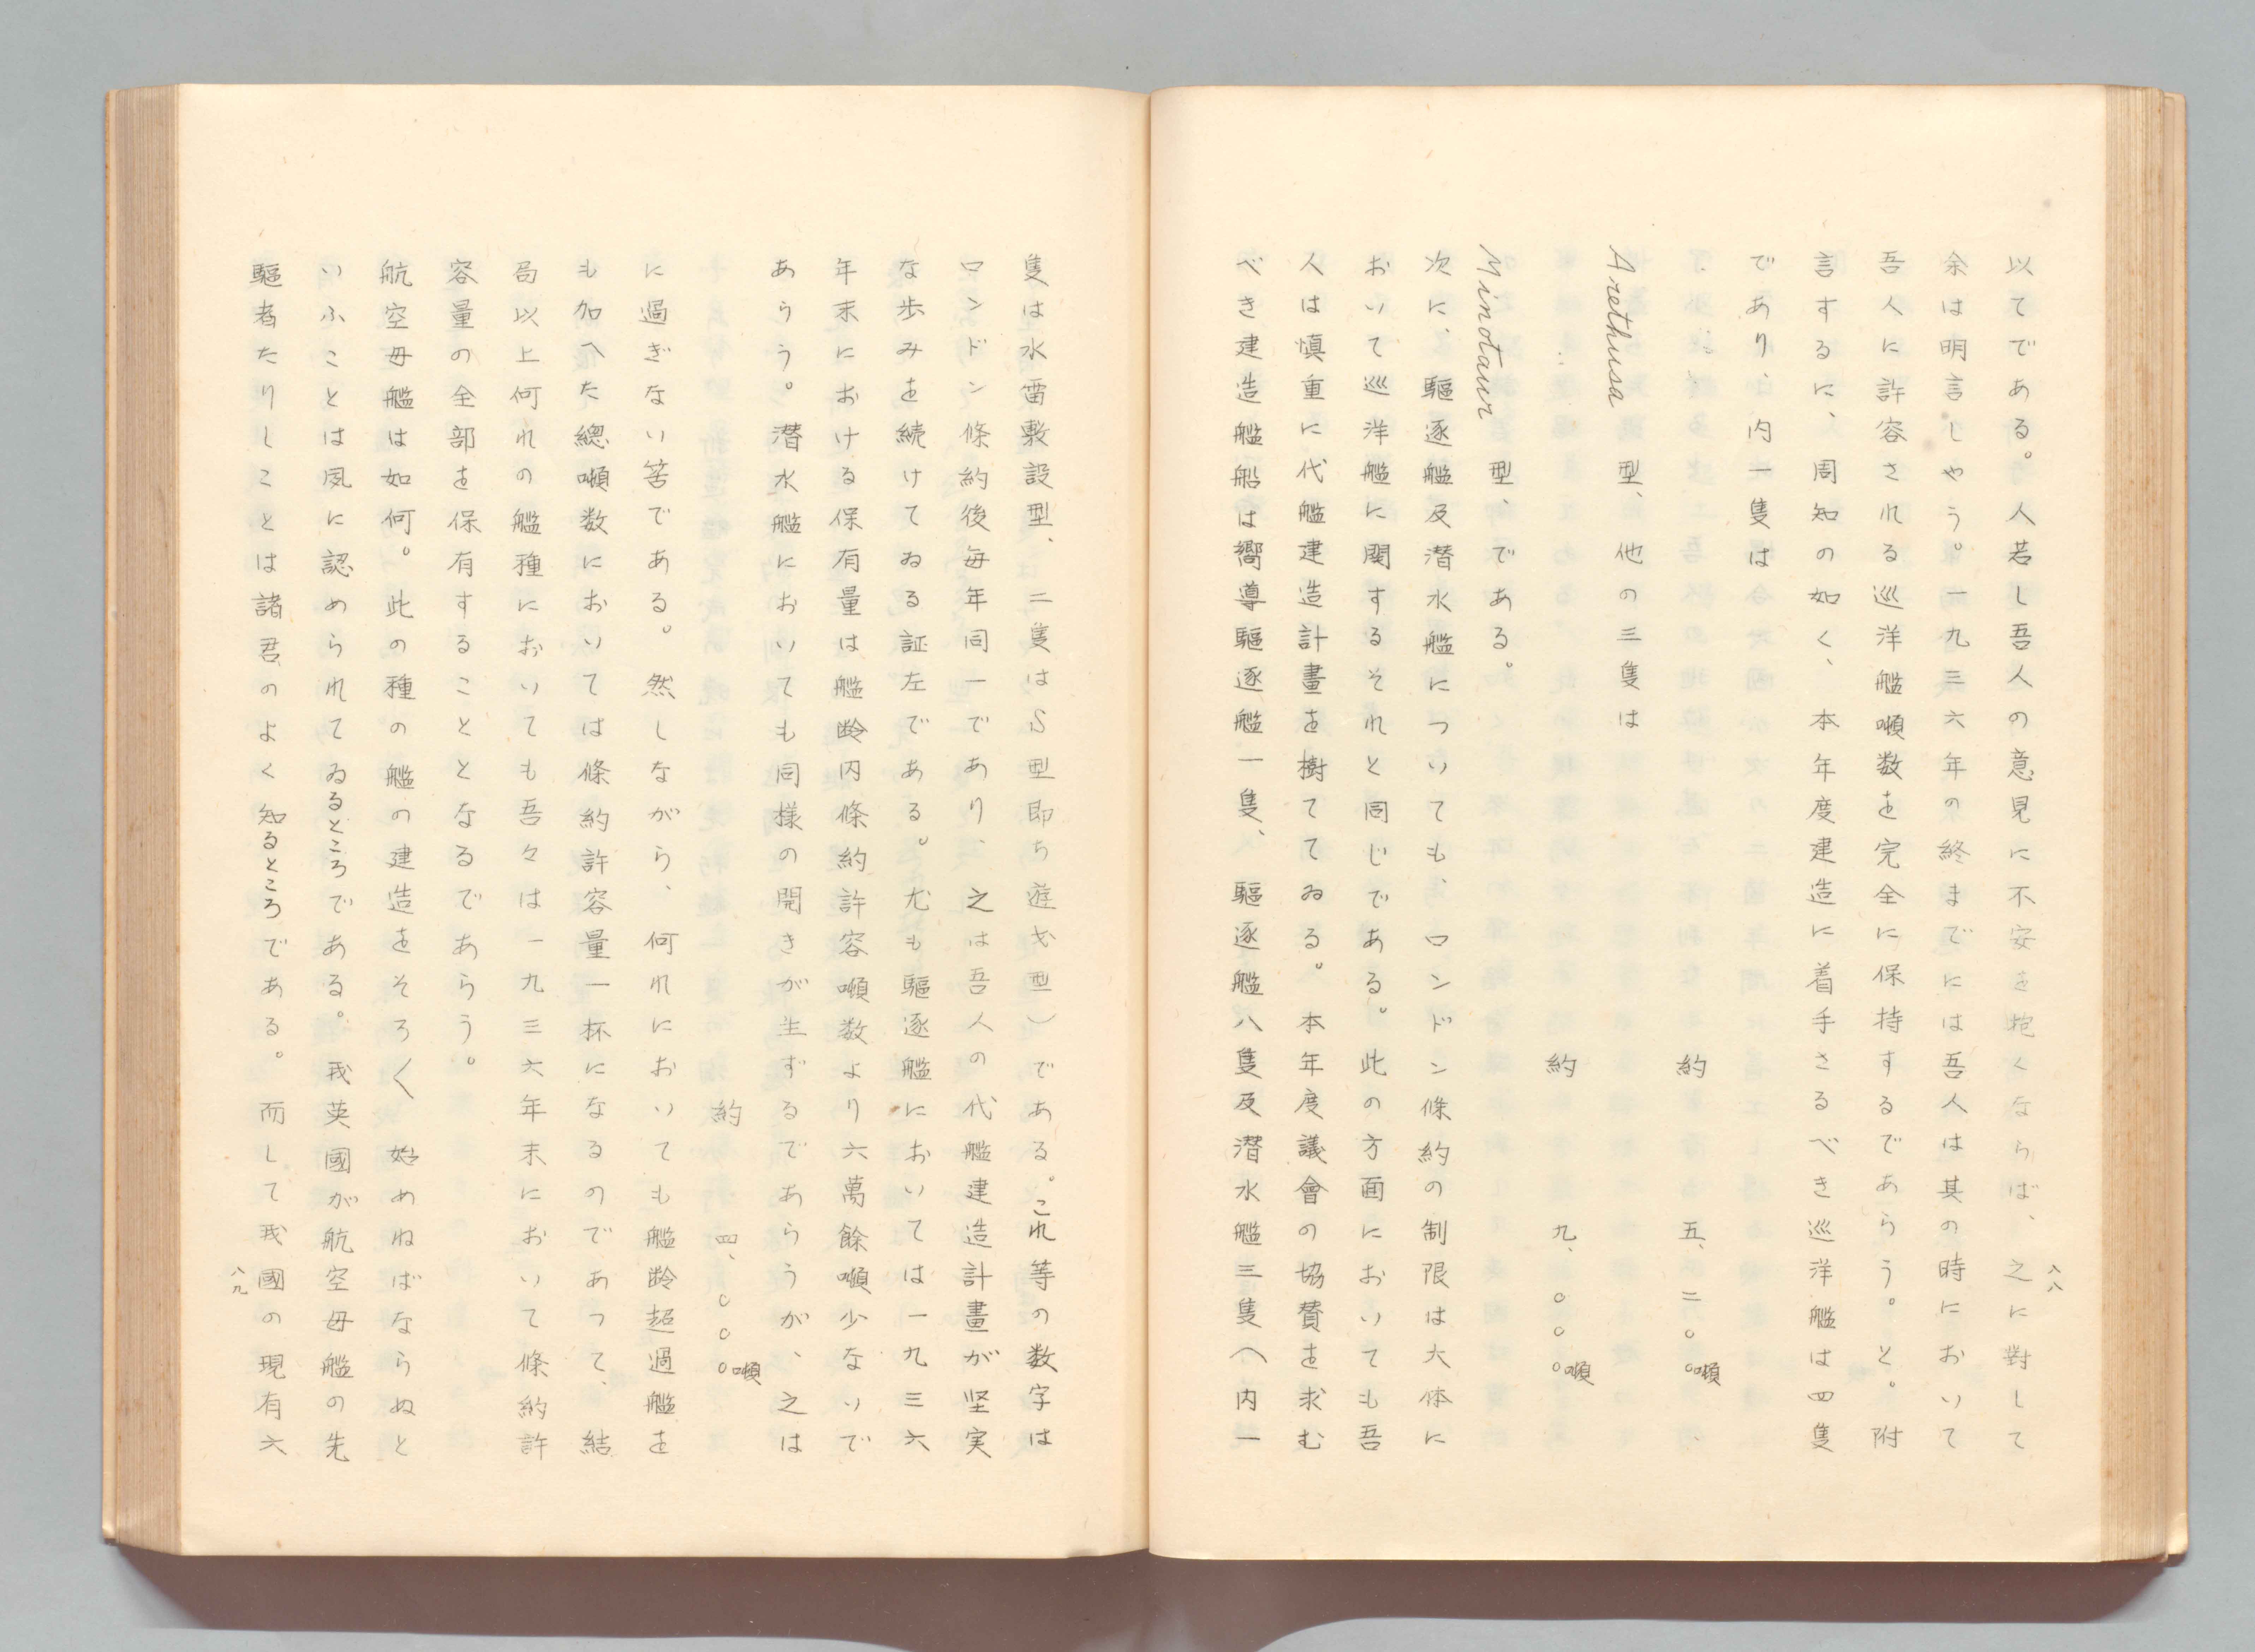 以てである。人若し吾人の意見に不安を抱くならば、之に對して
余は明言しやう。一九三六年の終までには吾人は其の時において
吾人に許容される巡洋艦噸数を完全に保持するであらう。と。附
言するに、周知の如く、本年度建造に着手さるべき巡洋艦は四隻
であり、内一隻は
約 五、二〇〇噸
Arethusa 型、他の三隻は
約 九、〇〇〇噸
Minotaur 型、である。
次に、驅逐艦及潜水艦についても、ロンドン條約の制限は大体に
おいて巡洋艦に関するそれと同じである。此の方面においても吾
人は慎重に代艦建造計畫を樹てゝゐる。本年度議會の協賛を求む
べき建造艦船は嚮導驅逐艦一隻、驅逐艦八隻及潜水艦三隻(内一
八八
隻は水雷敷設型、二隻はS型即ち遊弋型)である。これ等の数字は
ロンドン條約後毎年同一であり、之は吾人の代艦建造計畫が堅実
な歩みを続けてゐる証左である。尤も驅逐艦においては一九三六
年末における保有量は艦齢内條約許容噸数より六萬餘噸少ないで
あらう。潜水艦においても同様の開きが生ずるであらうが、之は
約 四、〇〇〇噸
に過ぎない筈である。然しながら、何れにおいても艦齢超過艦を
も加へた總噸数においては條約許容量一杯になるのであつて、結
局以上何れの艦種においても吾々は一九三六年末において條約許
容量の全部を保有することとなるであらう。
航空母艦は如何。此の種の艦の建造をそろ〱始めねばならぬと
いふことは夙に認められてゐるところである。我英國が航空母艦の先
驅者たりしことは諸君のよく知るところである。而して我國の現有六
八九